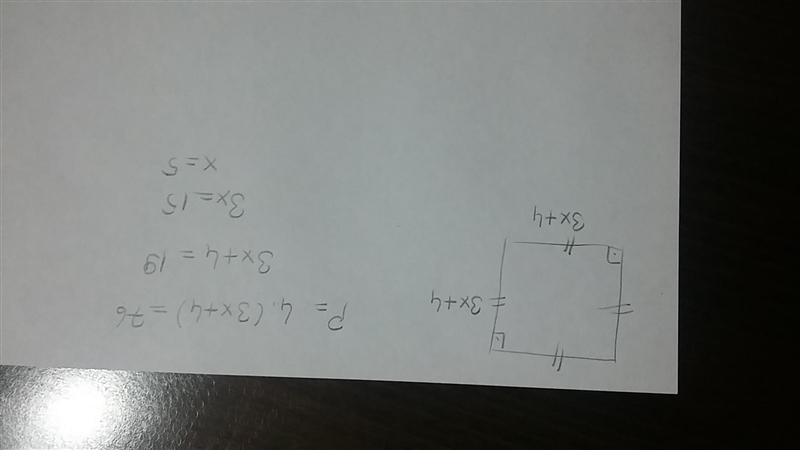 3x+4
3x+4
P = 4.(3x+4) = 76
3x+4 = 19
3x=15
x=5